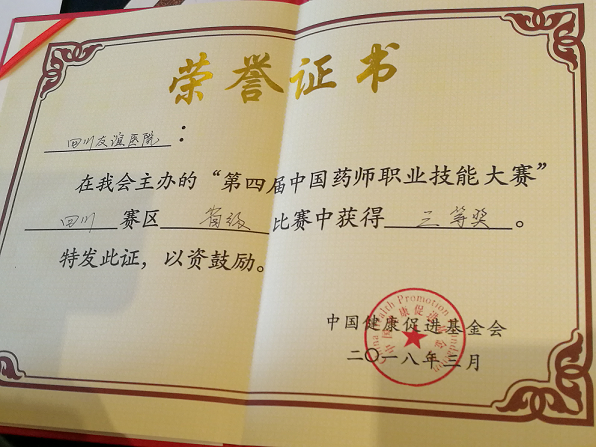 荣誉证书
四川友谊医院：
在我会主办的“第四届中国药师职业技能大赛”
四川赛区省级比赛中获得三等奖。
特发此证，以资鼓励。
中国健康促进基金会
二〇一八年三月
China Health Promotion Foundation
中国健康促进基金会